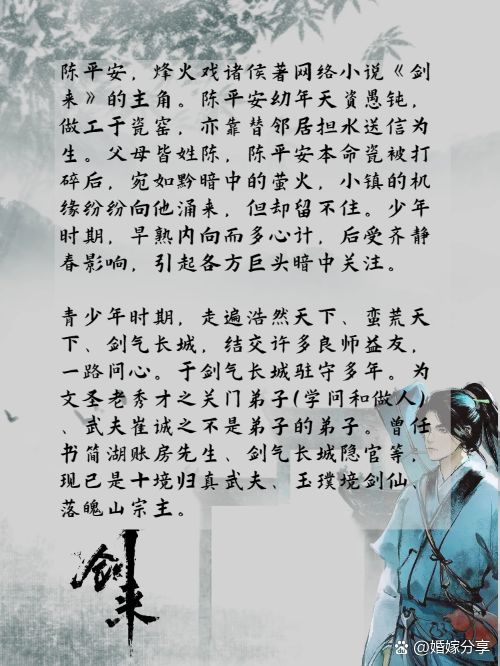 陈平安，烽火戏诸侯著网络小说《剑
来》的主角。陈平安幼年天资愚钝，
做工于瓷窑，亦靠替邻居担水送信为
生。父母皆姓陈，陈平安本命瓷被打
碎后，宛如黔暗中的萤火，小镇的机
缘纷纷向他涌来，但却留不住。少年
时期，早熟内向而多心计，后受齐静
春影响，引起各方巨头暗中关注。
青少年时期，走遍浩然天下、蛮荒天
下、剑气长城，结交许多良师益友，
一路问心。于剑气长城驻守多年。为
文圣老秀才之关门弟子(学问和做人)
、武夫崔诚之不是弟子的弟子。曾任
书简湖账房先生、剑气长城隐官等，
现已是十境归真武夫、玉璞境剑仙、
落魄山宗主。
剑来
@婚嫁分享